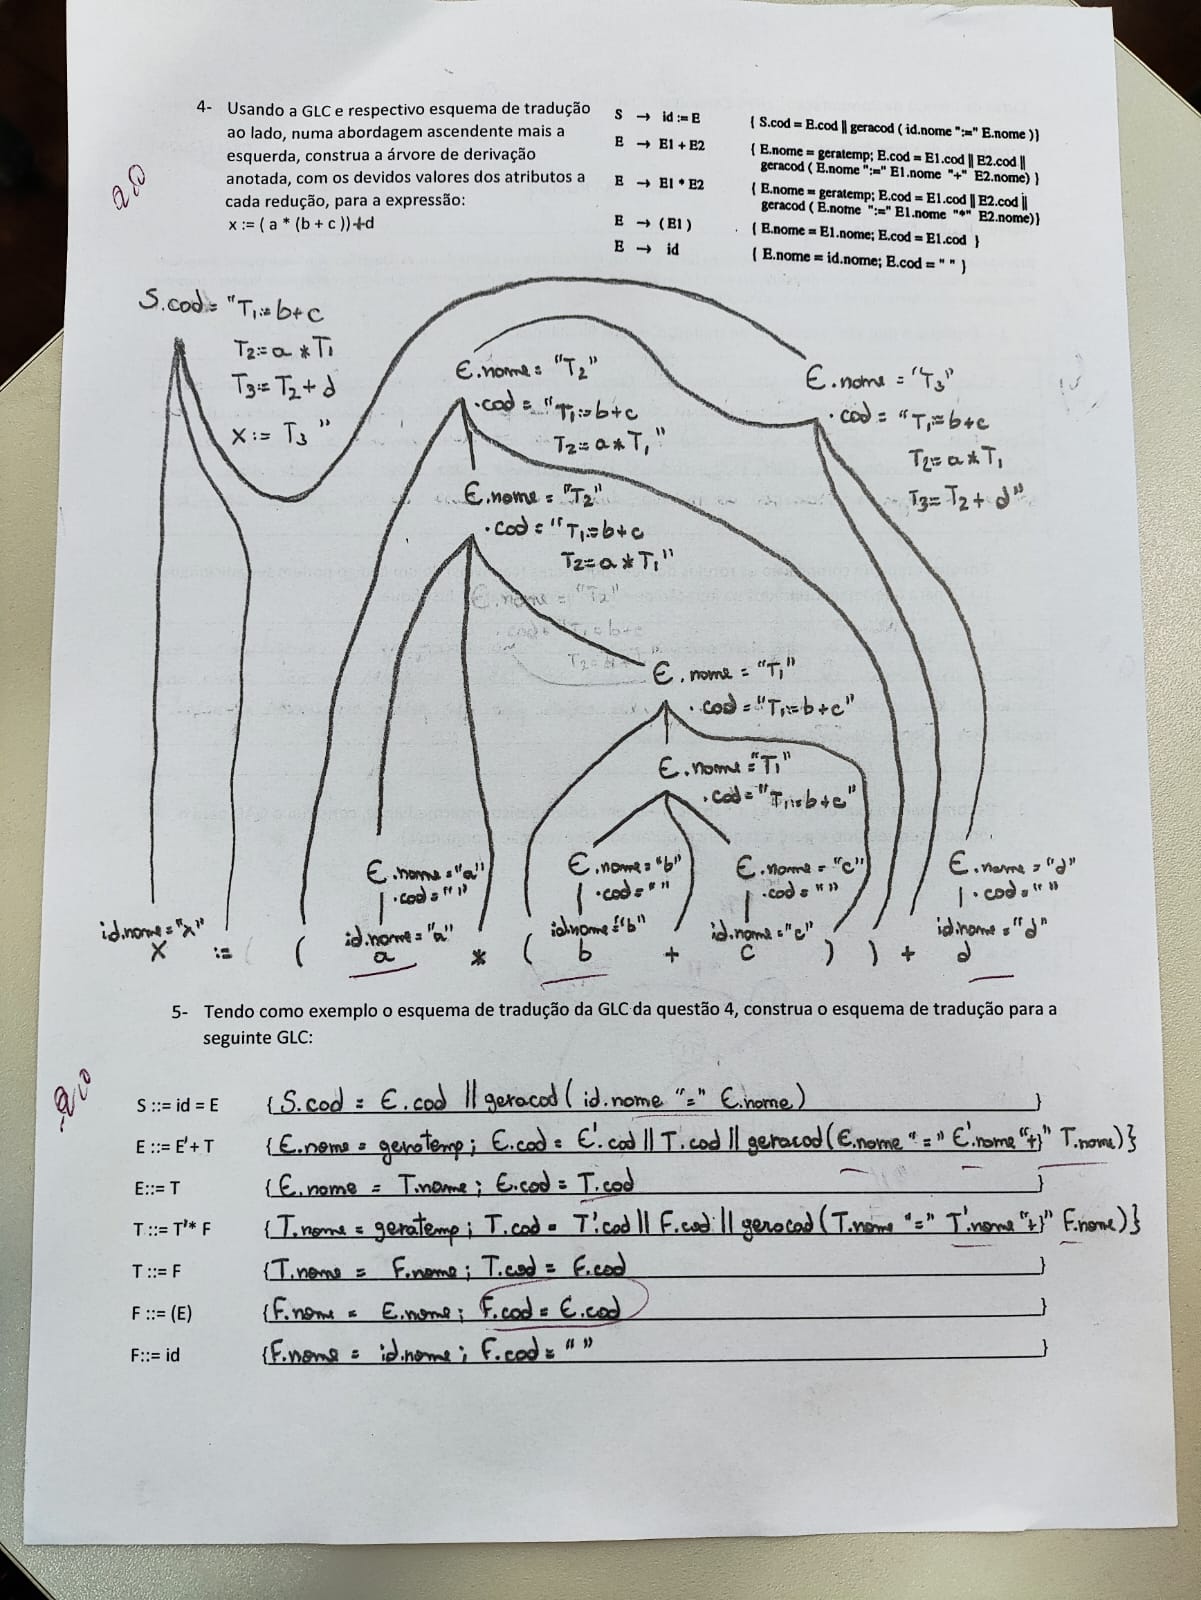 4- Usando a GLC e respectivo esquema de tradução
ao lado, numa abordagem ascendente mais a
esquerda, construa a árvore de derivação
anotada, com os devidos valores dos atributos a
cada redução, para a expressão:
x := ( a * (b + c ))+d
S → id := E { S.cod = E.cod || geracod ( id.nome ":=" E.nome )}
E → E1 + E2 { E.nome = geratemp; E.cod = E1.cod || E2.cod ||
geracod ( E.nome ":=" E1.nome "+" E2.nome) }
E → E1 * E2 { E.nome = geratemp; E.cod = E1.cod || E2.cod ||
geracod ( E.nome ":=" E1.nome "*" E2.nome)}
E → ( E1 ) { E.nome = E1.nome; E.cod = E1.cod }
E → id { E.nome = id.nome; E.cod = " " }
2,0
S.cod = "T1:= b+c
T2:= a * T1
T3:= T2 + d
X:= T3 "
E.nome = "T2"
.cod = "T1:= b+c
T2:= a * T1"
E.nome = "T3"
.cod = "T1:= b+c
T2:= a * T1
T3:= T2 + d"
E.nome = "T2"
.cod = "T1:= b+c
T2:= a * T1"
E.nome = "T1"
.cod = "T1:= b+c"
E.nome = "T1"
.cod = "T1:= b+c"
E.nome = "a"
.cod = " "
E.nome = "b"
.cod = " "
E.nome = "c"
.cod = " "
E.nome = "d"
.cod = " "
id.nome = "x" id.nome = "a" id.nome = "b" id.nome = "c" id.nome = "d"
X := ( a * ( b + c ) ) + d
5- Tendo como exemplo o esquema de tradução da GLC da questão 4, construa o esquema de tradução para a
seguinte GLC:
2,0
S ::= id = E {S.cod = E.cod || geracod( id.nome "=" E.nome) }
E ::= E'+ T {E.nome = geratemp; E.cod = E'.cod || T.cod || geracod(E.nome "=" E'.nome "+" T.nome)}
E::= T {E.nome = T.nome; E.cod = T.cod }
T ::= T'* F {T.nome = geratemp; T.cod = T'.cod || F.cod || geracod(T.nome "=" T'.nome "+" F.nome)}
T ::= F {T.nome = F.nome; T.cod = F.cod }
F ::= (E) {F.nome = E.nome; F.cod = E.cod }
F::= id {F.nome = id.nome; F.cod = " " }